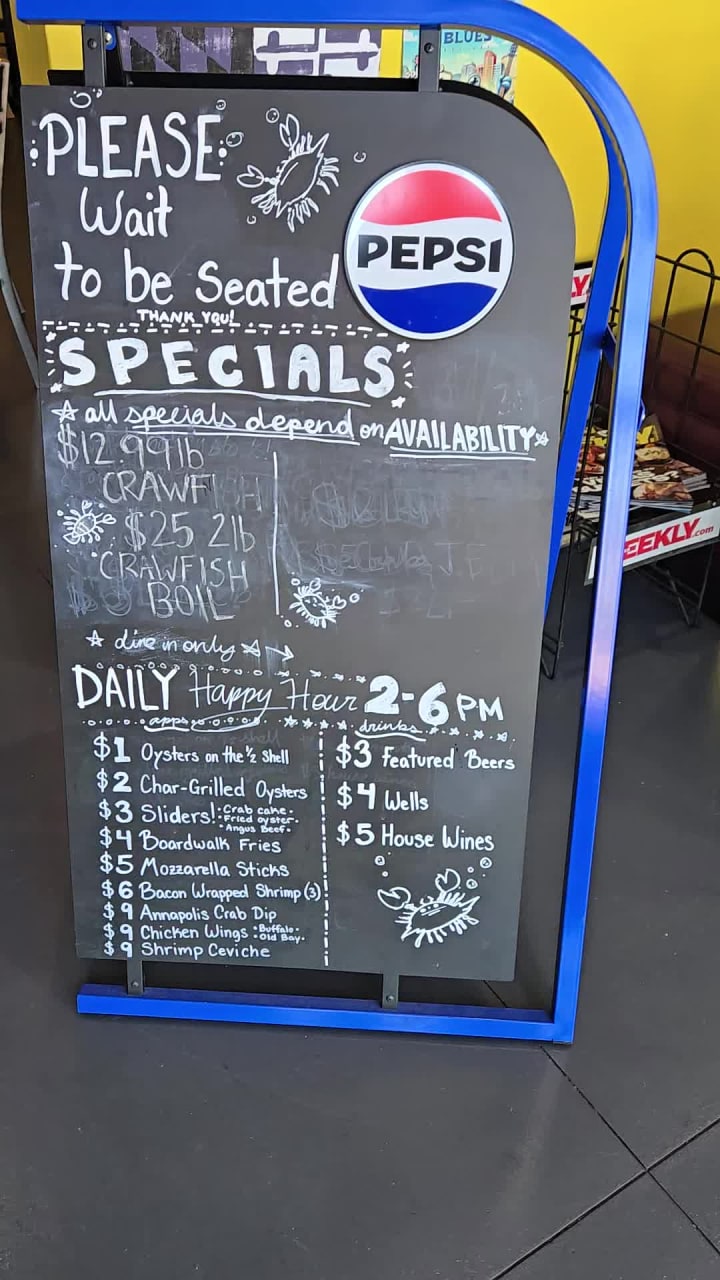 BLUES
PLEASE
Wait
to be Seated
THANK YOU!
PEPSI
SPECIALS
all specials depend on AVAILABILITY
$12 99 lb
CRAWFISH
$25 2lb
CRAWFISH
BOIL
dine in only
DAILY Happy Hour 2-6 PM
apps
$1 Oysters on the ½ Shell
$2 Char-Grilled Oysters
$3 Sliders! : Crab cake •
• Fried oyster •
• Angus Beef •
$4 Boardwalk Fries
$5 Mozzarella Sticks
$6 Bacon Wrapped Shrimp (3)
$9 Annapolis Crab Dip
$9 Chicken Wings • Buffalo •
• Old Bay •
$9 Shrimp Ceviche
drinks
$3 Featured Beers
$4 Wells
$5 House Wines
LY
EEKLY.com